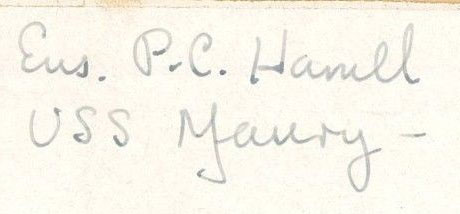 Ens. P.C. Hamll
USS Maury -